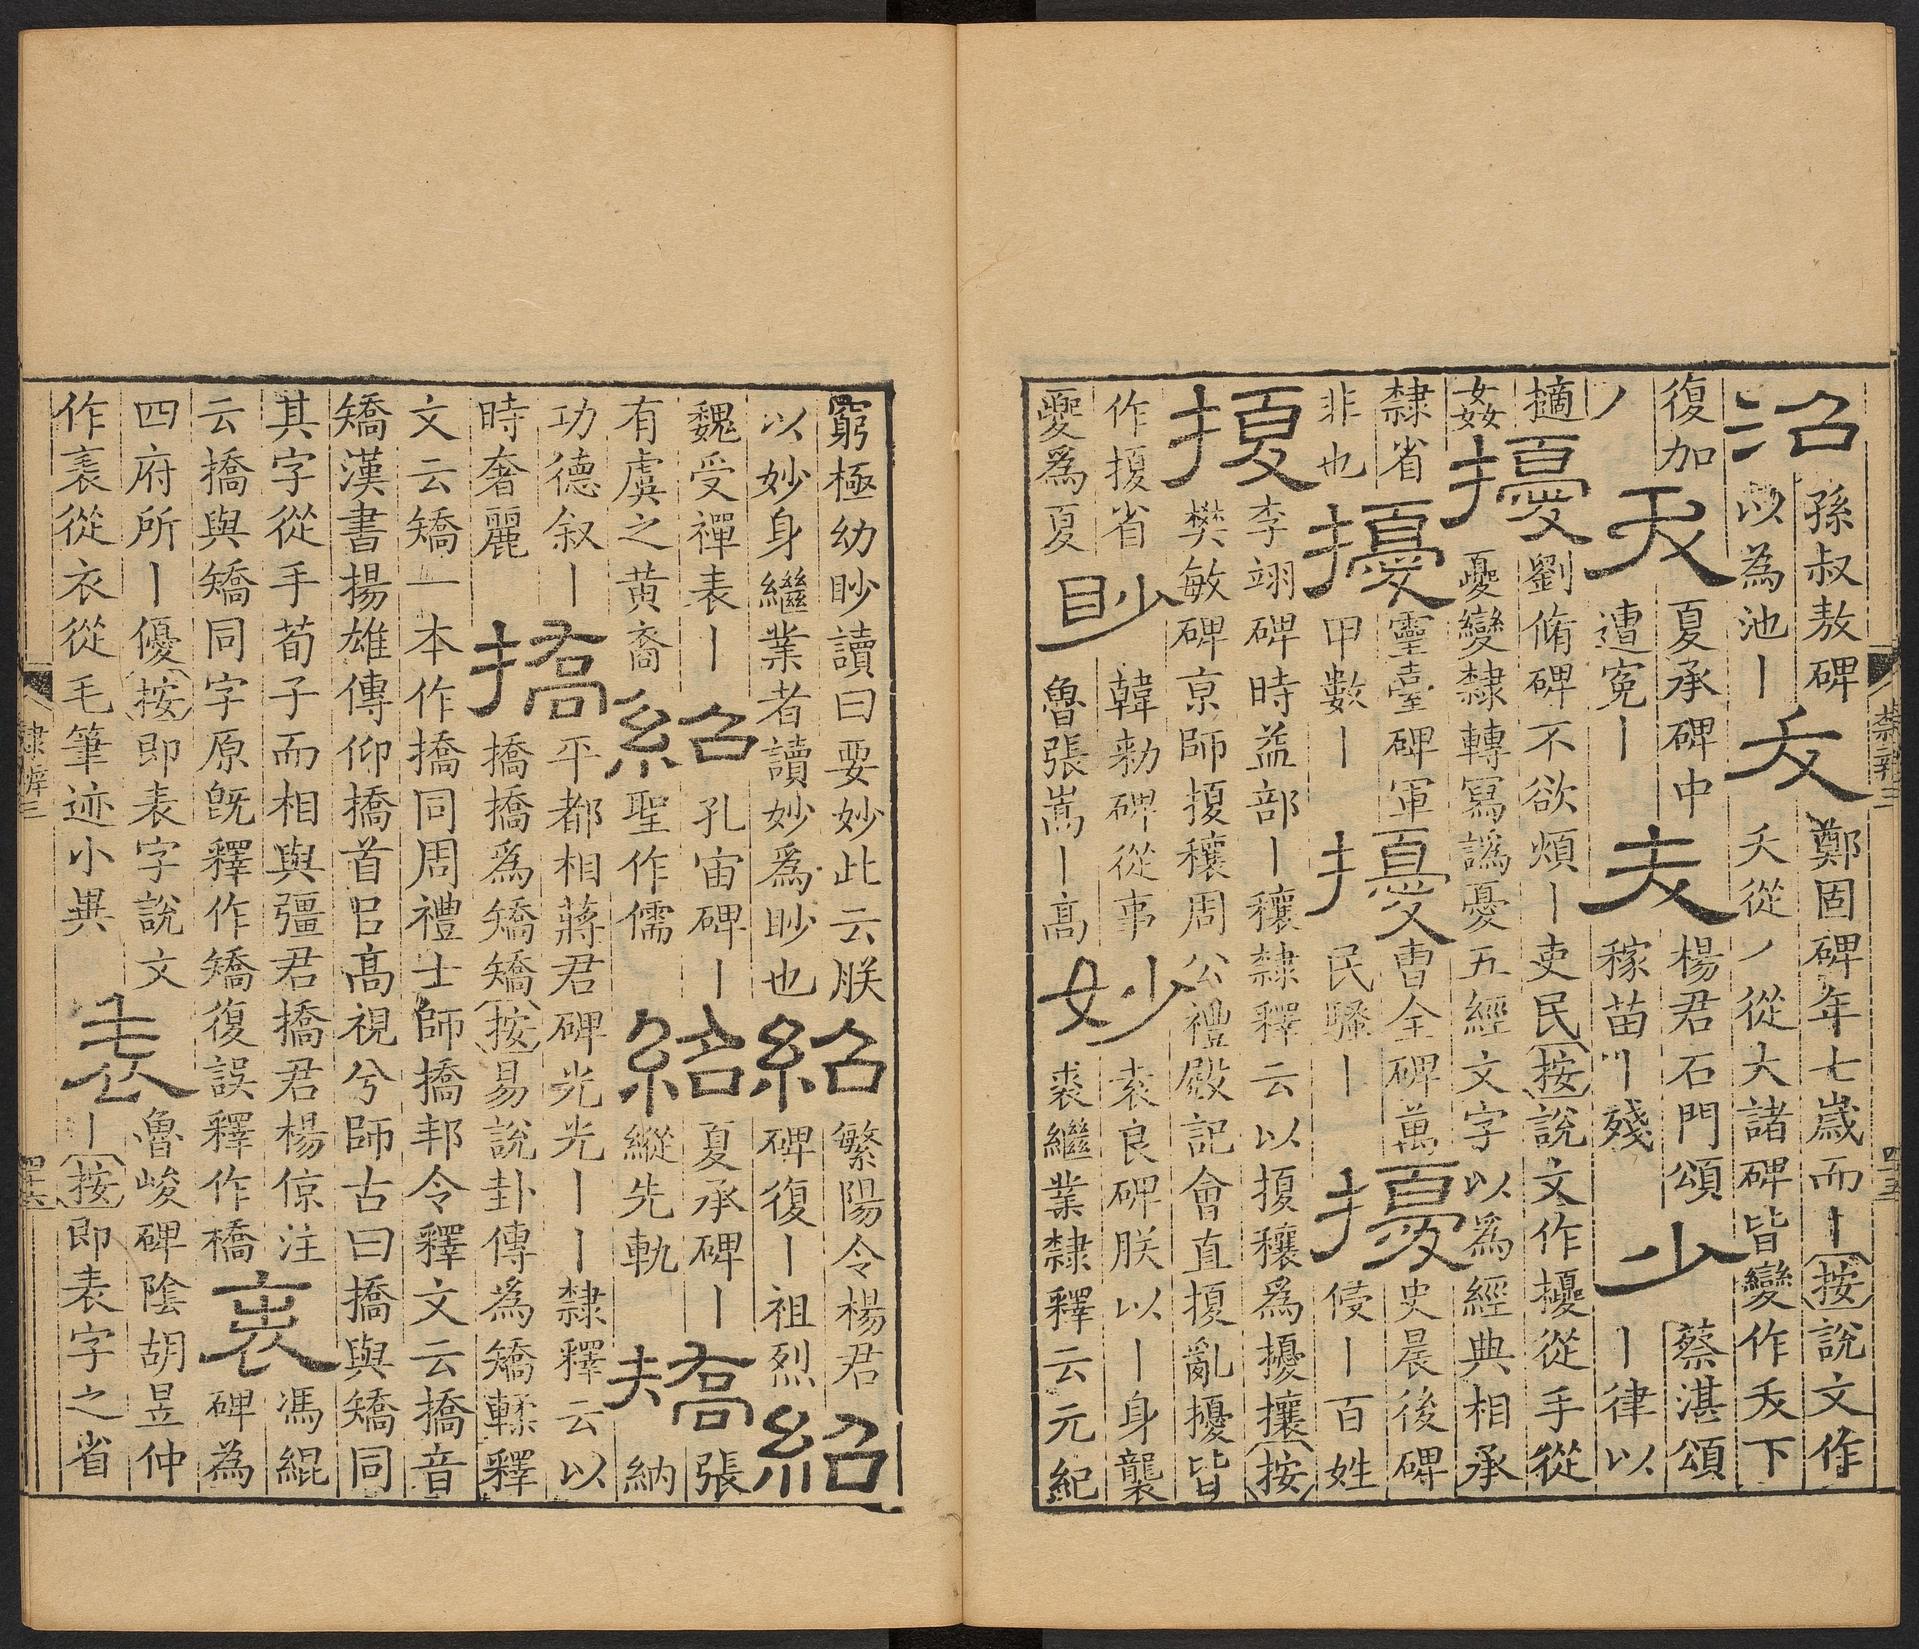 隸辨三 四十五
沼 孫叔敖碑 以為池丨 夭 鄭固碑年七歲而丨按說文作 夭從丿從大諸碑皆變作夭下
復加 丿 夭 夏承碑中 遭冤丨 夭 楊君石門頌 稼苗丨殘 少 蔡湛頌 丨律以
擿 姦 擾 劉脩碑不欲煩丨吏民按說文作擾從手從 夒變隸轉寫譌憂五經文字以為經典相承
隸省 非也 擾 靈臺碑軍 甲數丨 擾 曹全碑萬 民騷丨 擾 史晨後碑 侵丨百姓
擾 李翊碑時益部丨穰隸釋云以擾穰為擾攘按 樊敏碑京師擾穰周公禮殿記會直擾亂擾皆
作擾省 夒為夏 眇 韓勑碑從事 魯張嵩丨高 妙 袁良碑朕以丨身襲 裘繼業隸釋云元紀
窮極幼眇讀曰要妙此云朕 以妙身繼業者讀妙為眇也 紹 繁陽令楊君 碑復丨祖烈 紹
魏受禪表丨 有虞之黃裔 紹 孔宙碑丨 聖作儒 紹 夏承碑丨 縱先軌 矯 張 納
功德叙丨 時奢麗 撟 平都相蔣君碑光光丨丨隸釋云以 撟撟為矯矯按易說卦傳為矯輮釋
文云矯一本作撟同周禮士師撟邦令釋文云撟音 矯漢書揚雄傳仰撟首㠯高視兮師古曰撟與矯同
其字從手荀子而相與彊君撟君楊倞注 云撟與矯同字原旣釋作矯復誤釋作橋 表 馮緄 碑為
四府所丨優按即表字說文 作𧘝從衣從毛筆迹小異 表 魯峻碑陰胡昱仲 丨按即表字之省
隸辨三 四十六